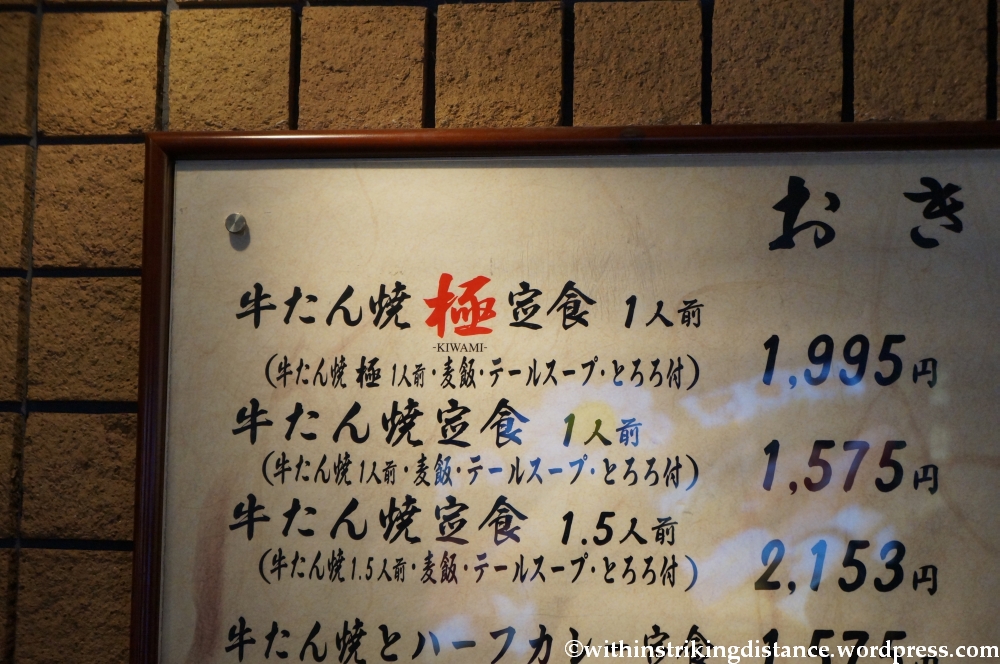 おき
牛たん焼 極 定食 1人前
-KIWAMI-
(牛たん焼 極 1人前・麦飯・テールスープ・とろろ付) 1,995円
牛たん焼定食 1人前
(牛たん焼1人前・麦飯・テールスープ・とろろ付) 1,575円
牛たん焼定食 1.5人前
(牛たん焼1.5人前・麦飯・テールスープ・とろろ付) 2,153円
牛たん焼とハーフカレー定食 1,575
©withinstrikingdistance.wordpress.com